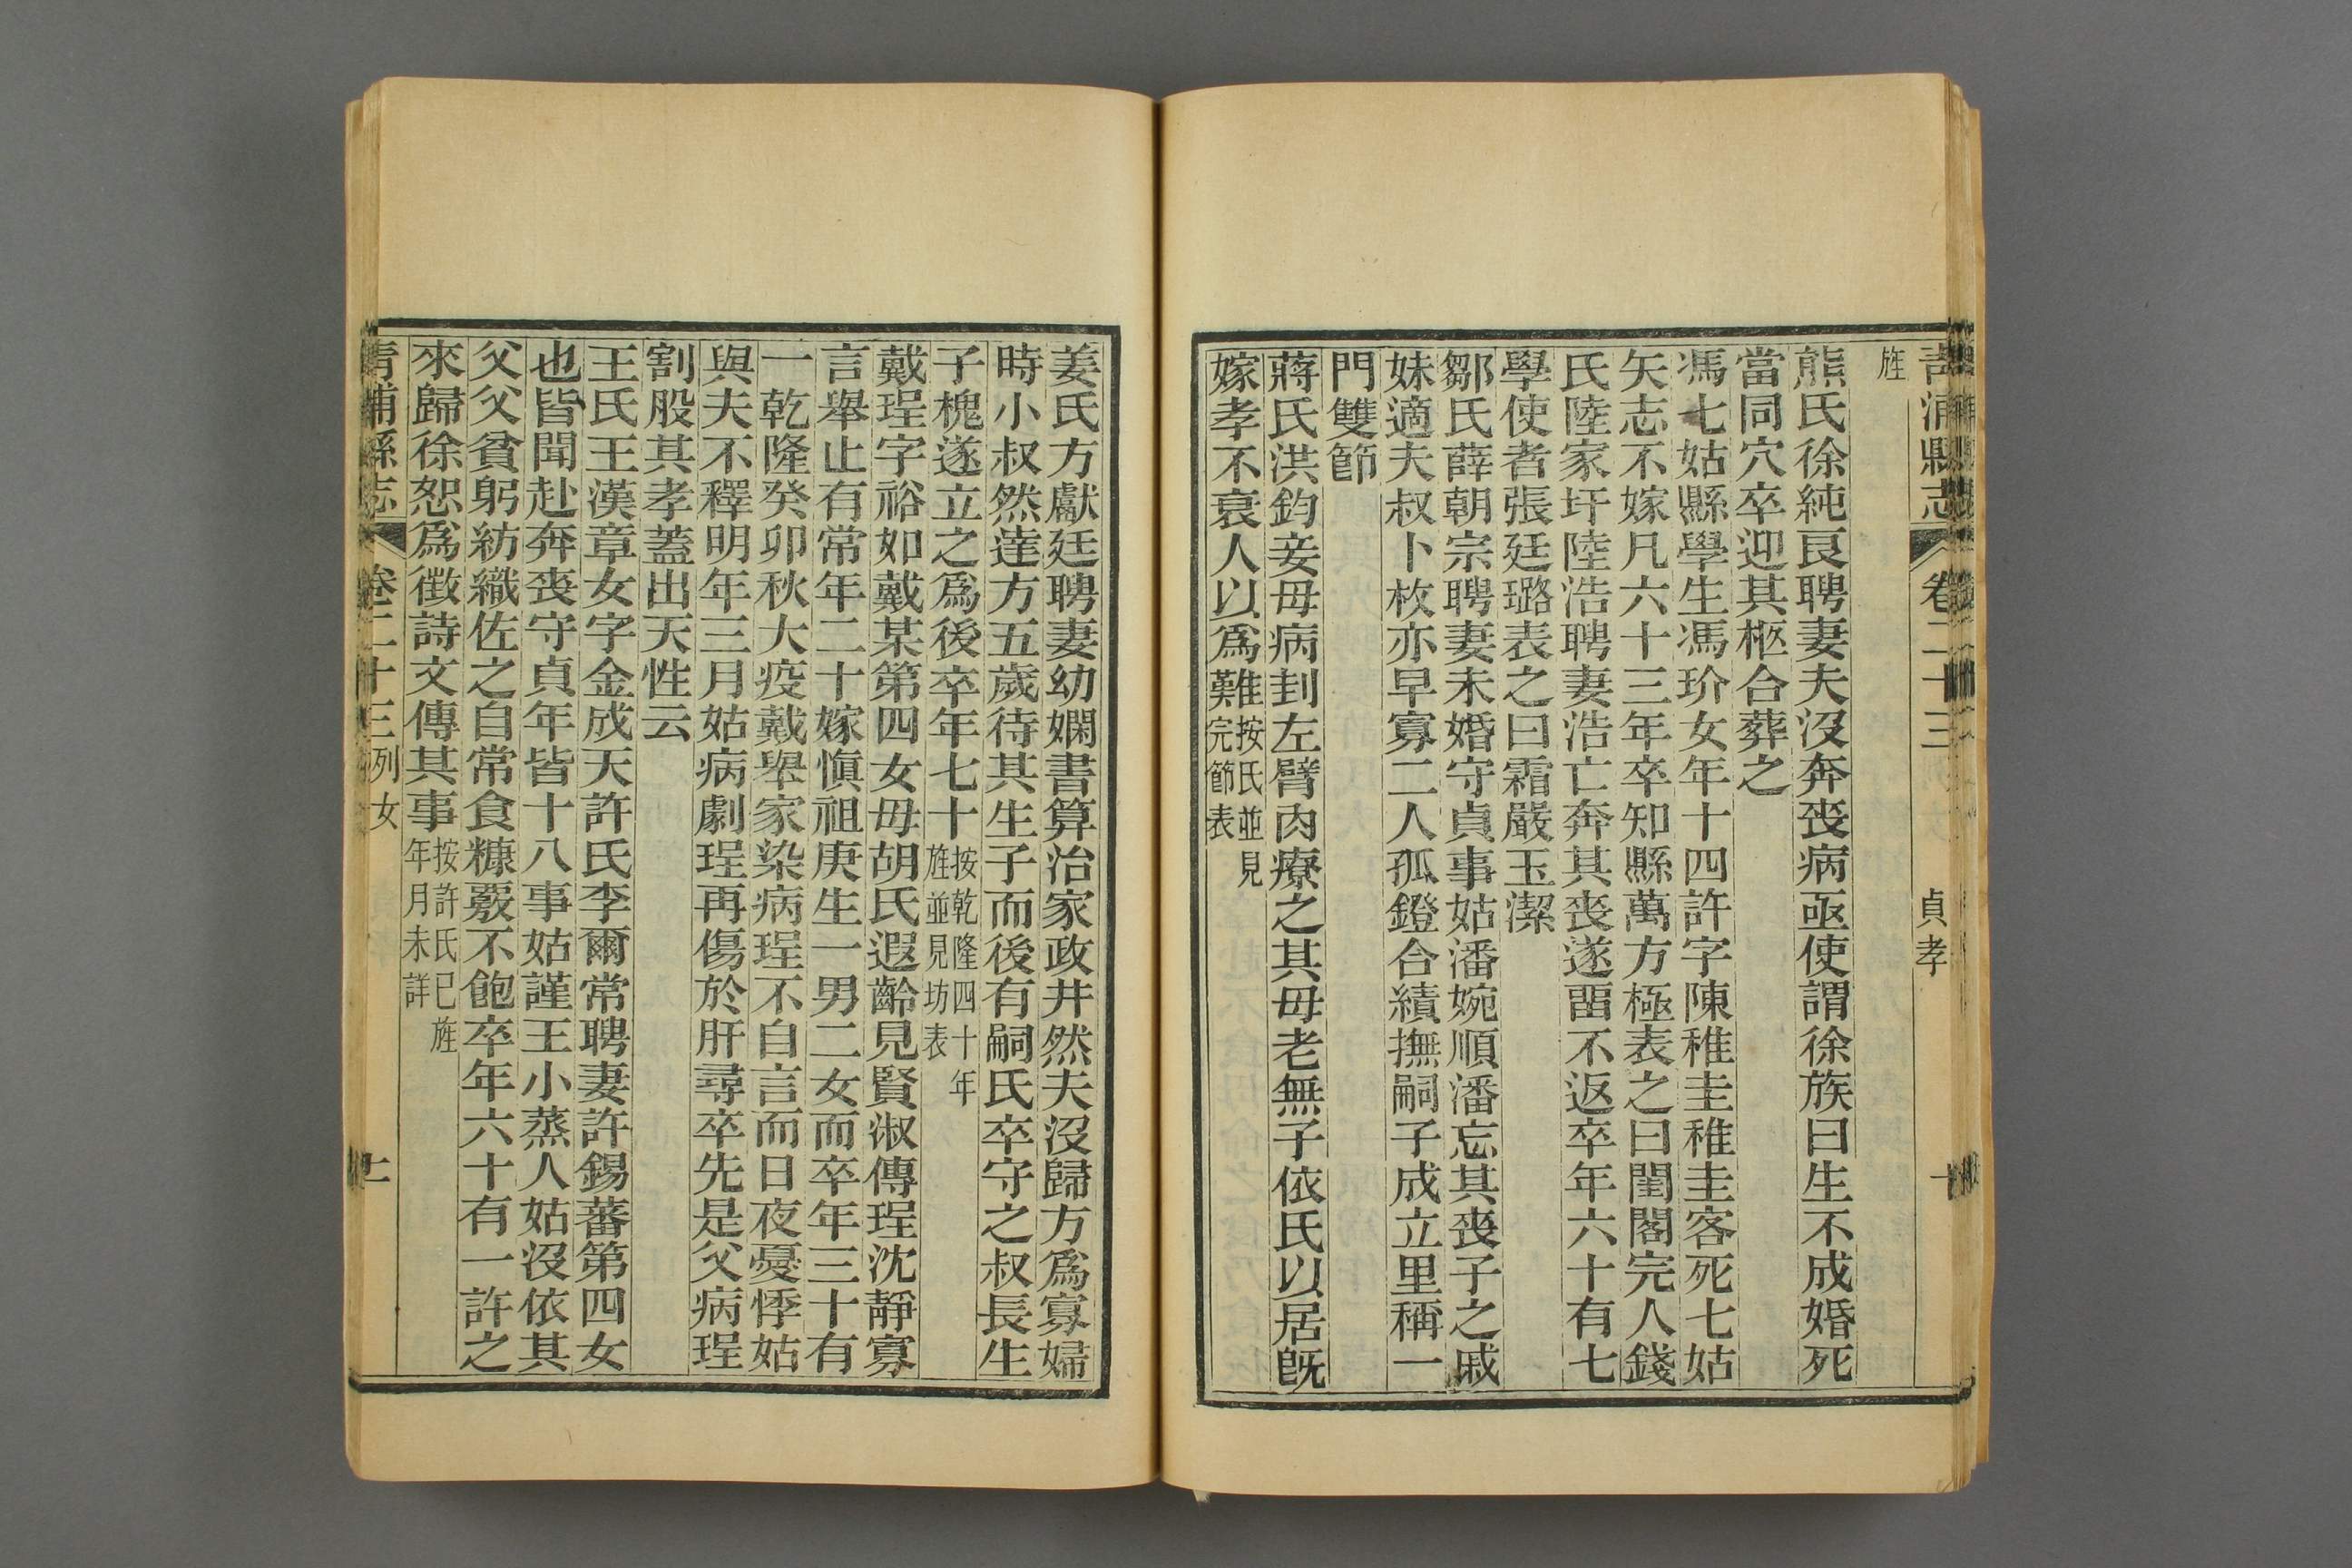 青浦縣志 卷二十三 貞孝 十
旌
熊氏徐純良聘妻夫沒奔喪病亟使謂徐族曰生不成婚死
當同穴卒迎其柩合葬之
馮七姑縣學生馮玠女年十四許字陳稚圭稚圭客死七姑
矢志不嫁凡六十三年卒知縣萬方極表之曰閨閣完人錢
氏陸家圩陸浩聘妻浩亡奔其喪遂畱不返卒年六十有七
學使者張廷璐表之曰霜嚴玉潔
鄒氏薛朝宗聘妻未婚守貞事姑潘婉順潘忘其喪子之戚
妹適夫叔卜枚亦早寡二人孤鐙合績撫嗣子成立里稱一
門雙節
蔣氏洪鈞妾母病刲左臂肉療之其母老無子依氏以居旣
嫁孝不衰人以爲難按氏並見
完節表
姜氏方獻廷聘妻幼嫻書算治家政井然夫沒歸方爲寡婦
時小叔然達方五歲待其生子而後有嗣氏卒守之叔長生
子槐遂立之爲後卒年七十按乾隆四十年
旌並見坊表
戴珵字裕如戴某第四女母胡氏遐齡見賢淑傳珵沈靜寡
言舉止有常年二十嫁愼祖庚生一男二女而卒年三十有
一乾隆癸卯秋大疫戴舉家染病珵不自言而日夜憂悸姑
與夫不釋明年三月姑病劇珵再傷於肝尋卒先是父病珵
割股其孝蓋出天性云
王氏王漢章女字金成天許氏李爾常聘妻許錫蕃第四女
也皆聞赴奔喪守貞年皆十八事姑謹王小蒸人姑沒依其
父父貧躬紡織佐之自常食糠覈不飽卒年六十有一許之
來歸徐恕爲徵詩文傳其事按許氏已旌
年月未詳
青浦縣志 卷二十三 列女